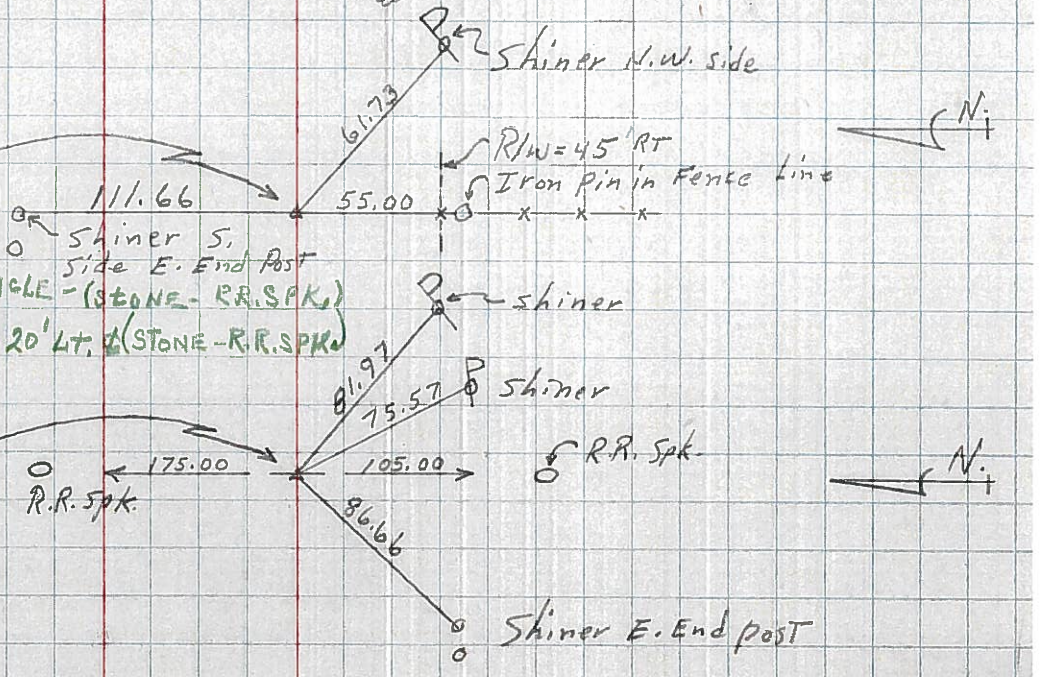 Shiner N.W. side
61.73
N.
R/W = 45' RT
Iron Pin in Fence Line
111.66
55.00
Shiner S.
Side E. End Post
GLE - (STONE - R.R.SPK.)
20' Lt. (STONE - R.R.SPK.)
shiner
81.97
75.57
Shiner
175.00
105.00
R.R. Spk.
N.
R.R. Spk.
86.66
Shiner E. End post